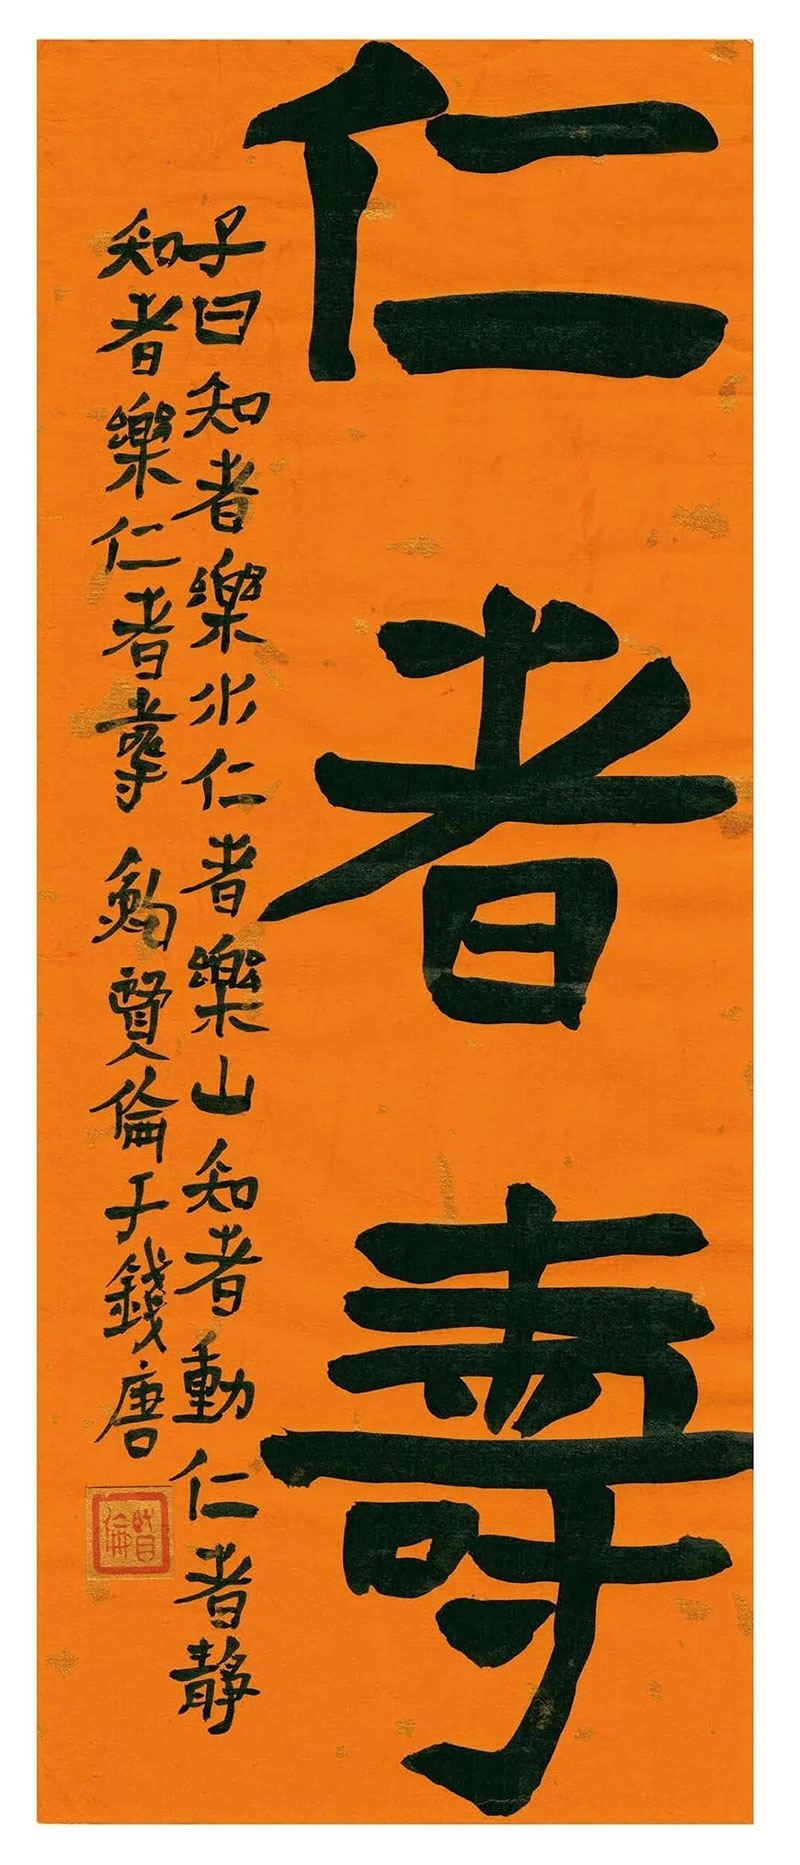 仁者壽
子曰知者樂水仁者樂山知者動仁者靜
知者樂仁者壽 鮑賢倫于錢唐
賢倫